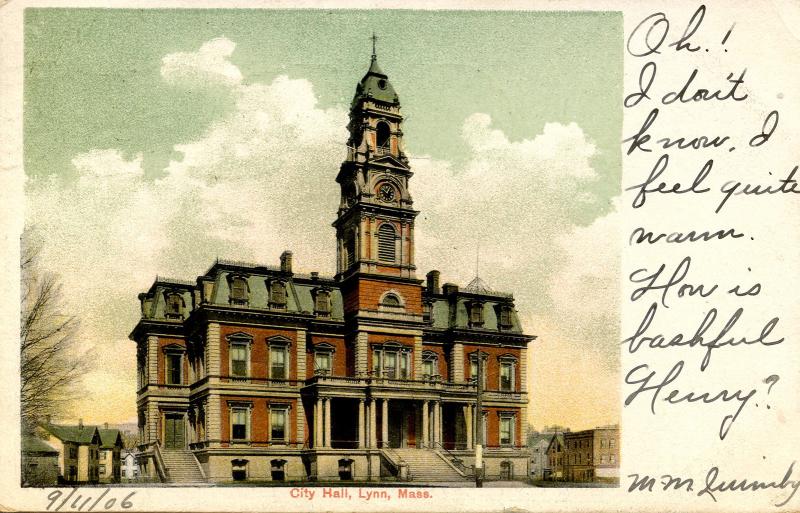 Oh.!
I don't
know. I
feel quite
warm.
How is
bashful
Henry?
M M Quimby
9/4/06
City Hall, Lynn, Mass.